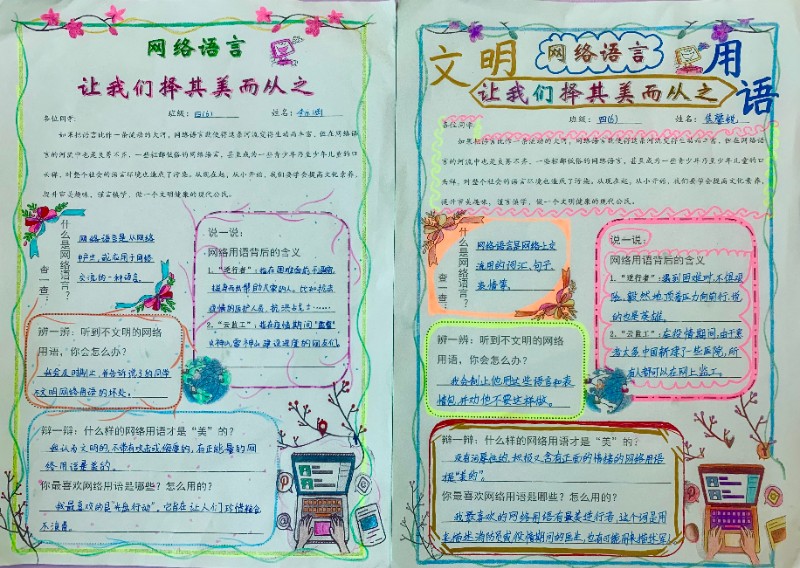 网络语言
让我们择其美而从之
各位同学:
班级: 四(6)
姓名:
如果把语言比作一条流动的大河，网络语言就使得这条河流变得生动而丰富。但在网络语
言的河流中也是良莠不齐，一些粗鄙低俗的网络语言，甚至成为一些青少年乃至少年儿童的口
头禅，对整个社会的语言环境也造成了污染。从现在起，从小开始，我们要学会提高文化素养，
提升审美趣味，谨言慎学，做一个文明健康的现代公民。
查一查:
什么是网络语言?
网络语言是从网络
中产生，或应用于网络
交流的一种语言。
说一说:
网络用语背后的含义
1、“逆行者”: 指在困难面前不退缩，
挺身而出帮助人们的人。比如抗击
疫情的医护人员，抗洪兵……
2、“云监工”: 指在疫情期间“云监督”
火神山雷神山建设进度的网友们。
辨一辨: 听到不文明的网络
用语，你会怎么办?
我会及时制止，并告诉说了的同学
不文明网络用语的坏处。
辩一辩: 什么样的网络用语才是“美”的?
我认为文明的，不带有攻击或侮辱的，有正能量的网
络用语是美的。
你最喜欢网络用语是哪些? 怎么用的?
我最喜欢的是“光盘行动”，它能让人们珍惜粮食
不浪费。
文明
网络语言
用语
让我们择其美而从之
各位同学:
班级: 四(6)
姓名:
如果把语言比作一条流动的大河，网络语言就使得这条河流变得生动而丰富。但在网络语
言的河流中也是良莠不齐，一些粗鄙低俗的网络语言，甚至成为一些青少年乃至少年儿童的口
头禅，对整个社会的语言环境也造成了污染。从现在起，从小开始，我们要学会提高文化素养，
提升审美趣味，谨言慎学，做一个文明健康的现代公民。
查一查:
什么是网络语言?
网络语言是网络上交
流用的词汇、句子、
表情等。
说一说:
网络用语背后的含义
1、“逆行者”: 遇到困难时，不怕艰
险，毅然地顶着压力向前行，说
的也是英雄。
2、“云监工”: 在疫情期间，由于患
者太多，中国新建了一些医院，所
有人都可以在网上监工。
辨一辨: 听到不文明的网络
用语，你会怎么办?
我会制止他用这些语言和表
情包，并劝他不要这样做。
辩一辩: 什么样的网络用语才是“美”的?
没有污辱性的，积极又含有正面的情绪的网络用语
是“美的”。
你最喜欢网络用语是哪些? 怎么用的?
我最喜欢的网络用语有最美逆行者，这个词是用
来描述消防员或疫情期间的医生，也有可能用来描述军人